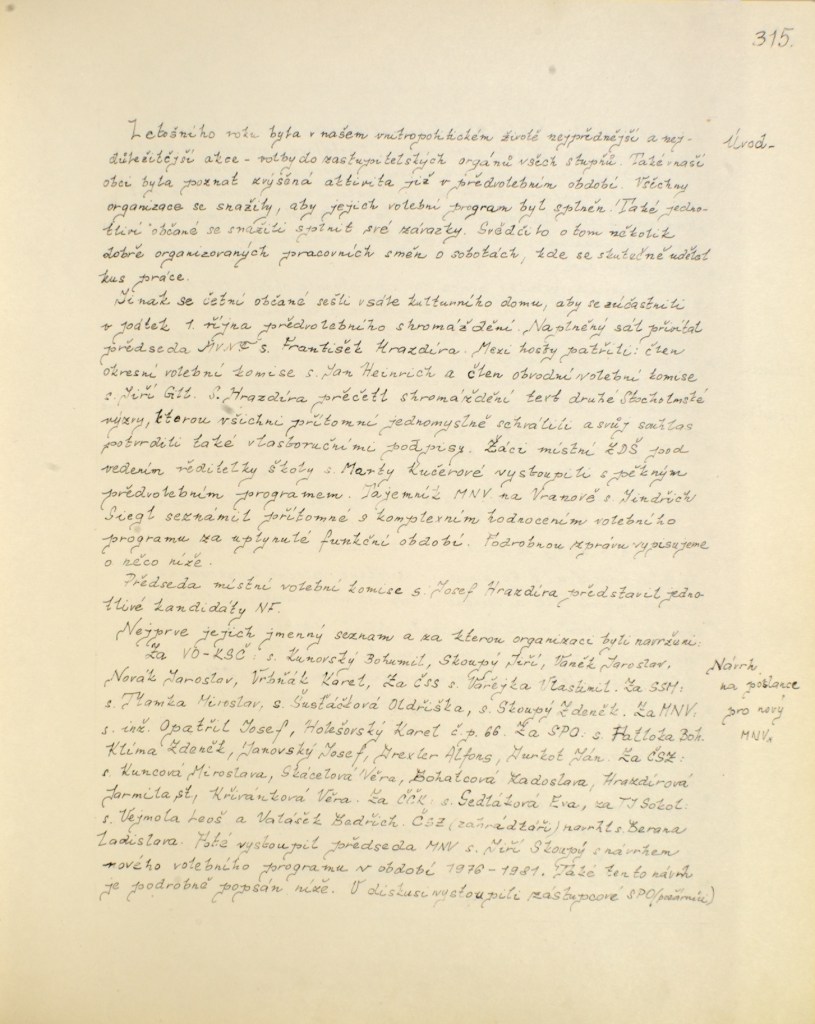 315.
Letošního roku byla v našem vnitropolitickém životě nejpřednější a nej-
důležitější akce - volby do zastupitelských orgánů všech stupňů. Také v naší
obci byla poznat zvýšená aktivita již v předvolebním období. Všechny
organizace se snažily, aby jejich volební program byl splněn. Také jedno-
tliví občané se snažili splnit své závazky. Svědčilo o tom několik
dobře organizovaných pracovních směn o sobotách, kde se skutečně udělal
kus práce.
Úvod-
Jinak se četní občané sešli v sále kulturního domu, aby se zúčastnili
v pátek 1. října předvolebního shromáždění. Naplněný sál přivítal
předseda MVNF s. František Hrazdíra. Mezi hosty patřili: člen
okresní volební komise s. Jan Heinrich a člen obvodní volební komise
s. Jiří Gll. S. Hrazdíra přečetl shromáždění text druhé Stocholmské
výzvy, kterou všichni přítomní jednomyslně schválili a svůj souhlas
potvrdili také vlastoručními podpisy. Žáci místní ZDŠ pod
vedením ředitelky školy s. Marty Kučerové vystoupili s pěkným
předvolebním programem. Tajemník MNV na Vranově s. Jindřich
Siegl seznámil přítomné s komplexním hodnocením volebního
programu za uplynulé funkční období. Podrobnou zprávu vypisujeme
o něco níže.
Předseda místní volební komise s. Josef Hrazdíra představil jedno-
tlivé kandidáty NF.
Nejprve jejich jmenný seznam a za kterou organizaci byli navrženi:
Za VO-KSČ: s. Kunovský Bohumil, Skoupý Jiří, Vaněk Jaroslav,
Novák Jaroslav, Vrbňák Karel, Za ČSS s. Vařejka Vlastimil. Za SSM:
s. Tlamka Miroslav, s. Šustáčková Oldřiška, s. Skoupý Zdeněk. Za MNV:
s. inž. Opatřil Josef, Holešovský Karel č.p. 66. Za SPO: s. Patloka Boh.
Klíma Zdeněk, Janovský Josef, Drexler Alfons, Durkot Ján. Za ČSŽ:
s. Kuncová Miroslava, Skácelová Věra, Bohatcová Radoslava, Hrazdírová
Jarmila, st, Křivánková Věra. Za ČČK: s. Sedláková Eva, za TJ Sokol:
s. Vejmola Leoš a Valášek Bedřich. ČSZ (zahrádkáři) navrhl s. Berana
Ladislava. Poté vystoupil předseda MNV s. Jiří Skoupý s návrhem
nového volebního programu v období 1976-1981. Také tento návrh
je podrobně popsán níže. V diskusi vystoupili zástupcové SPO (požárníci)
Návrh
na poslance
pro nový
MNV.